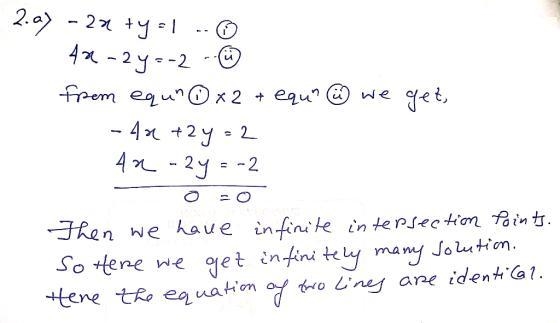 2.a) - 2x + y = 1 -- (i)
4x - 2y = -2 -- (ii)
from equⁿ (i) x 2 + equⁿ (ii) we get,
- 4x + 2y = 2
4x - 2y = -2
0 = 0
Then we have infinite intersection points.
So Here we get infinitely many solution.
Here the equation of two lines are identical.